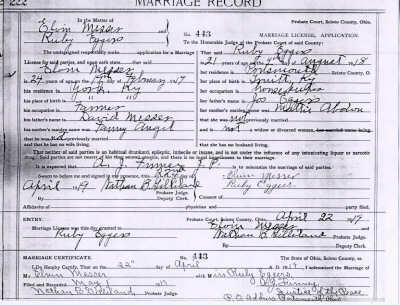 222
MARRIAGE RECORD
Probate Court, Scioto County, Ohio.
In the Matter of
Elvin Messer
and
Ruby Eggers
No. 443
MARRIAGE LICENSE, APPLICATION.
To the Honorable Judge of the Probate Court of said County:
The undersigned respectfully makes application for a Marriage License for said parties, and upon oath states:
That said Ruby Eggers
That said Elvin Messer
is 24 years of age February
21 years of age August
his residence is York, Ky
her residence is Portsmouth Scioto County, O.
his place of birth is
her place of birth is Ky
his occupation is Farmer
her occupation is Housekeeper
his father's name is David Messer
her father's name is Jas Eggers
his mother's maiden name was Fanny Angel
her mother's maiden name was Mattie
that he was not previously married
that she was not previously married
and that he has no wife living.
and is not a widow or divorced woman,
that she has no husband living.
That neither of said parties is an habitual drunkard, epileptic, imbecile or insane, and is not under the influence of any intoxicating liquor or narcotic drug. Said parties are not nearer of kin than second cousins, and there is no legal impediment to their marriage.
It is expected that A. J. Finney J.P. is to solemnize the marriage of said parties.
Sworn to before me and signed in my presence, this 22nd day of
Elvin Messer
April 1919 Nathan B. Gilliland
Ruby Eggers
Probate Judge.
By Deputy Clerk.
Affidavits of physician and party filed.
ENTRY.
Probate Court, Scioto County, Ohio, April 22 1919
Marriage License was this day granted to Elvin Messer
and Ruby Eggers
Nathan B. Gilliland
Probate Judge.
By Deputy Clerk.
MARRIAGE CERTIFICATE.
No. 443
I Do Hereby Certify, That on the 22nd day of April A. D. 1919, I solemnized the Marriage of
Mr. Elvin Messer with Miss Ruby Eggers.
Filed and Recorded May 1 1919
A. J. Finney,
Nathan B. Gilliland Probate Judge.
Justice of the Peace
P.O. Address Portsmouth Ohio